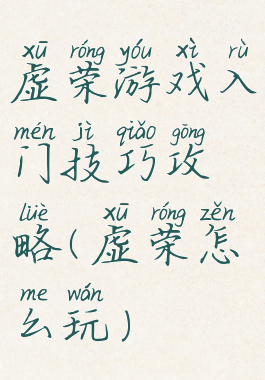 xū róng yóu xì rù
虚荣游戏入
mén jì qiǎo gōng
门技巧攻
lüè xū róng zěn
略(虚荣怎
me wán
么玩)